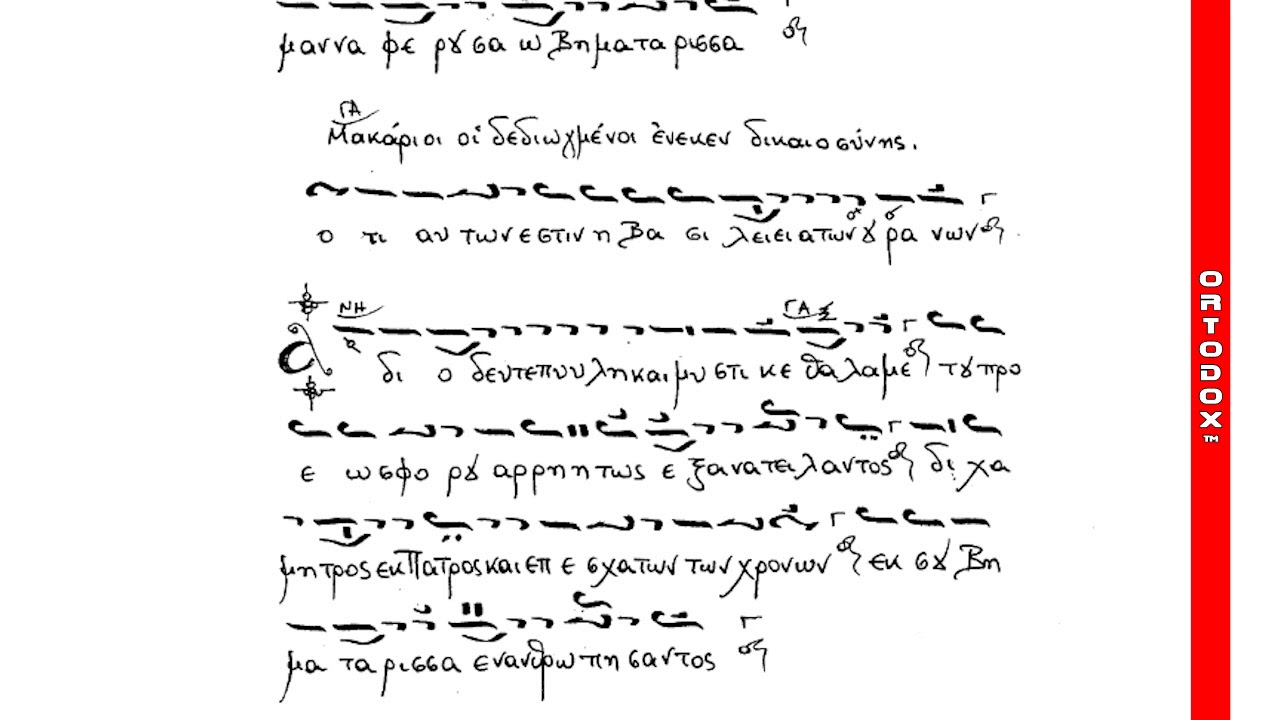 μαννα φε ρȣσα ω Βηματαρισσα
ΓΑ
Μακάριοι οἱ δεδιωγμένοι ἕνεκεν δικαιοσύνης.
ο τι αυ των εστιν η Βα σι λειειατωνȣρα νων
ΝΗ ΓΑ
δι ο δευτεπυυληκαιμυστι κε θαλαμε τȣπρο
ε ωσφο ρȣ αρρηητως ε ξανατειλαντος διχα
μητροςεκΠατροςκαιεπ ε σχατων των χρονων εκ σȣ Βη
μα ταρισσα ενανθρωπησαντος
ORTODOX™